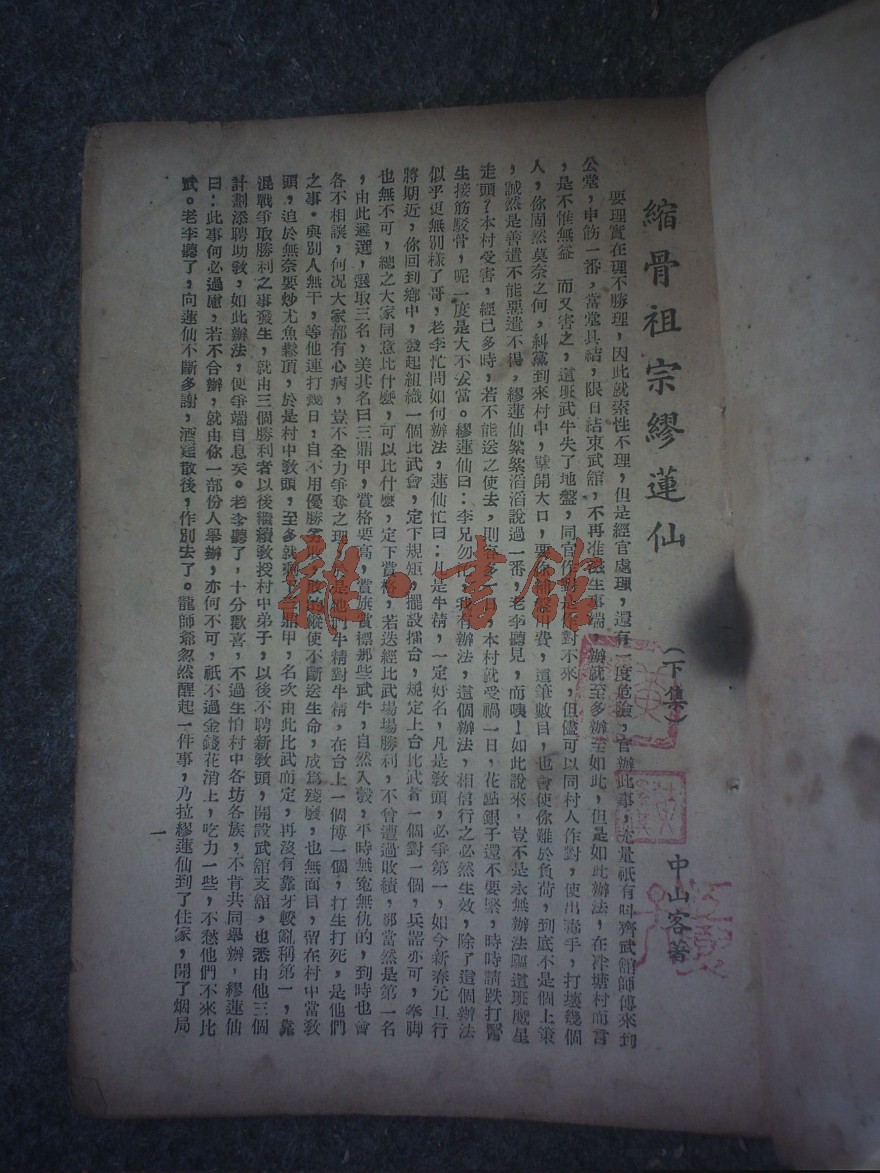 縮骨祖宗繆蓮仙
(下集)
中山客著
要理實在理不勝理，因此就索性不理，但是經官處理，還有一度危險，官辦此事，充量祇有叫齊武館師傅來到
公堂，申飭一番，當堂具結，限日結束武舘，不再准滋生事端，辦就至多辦至如此，但是如此辦法，在泮塘村而言
，是不惟無益 而又害之，這班武牛失了地盤，同官作對是作對不來，但儘可以同村人作對，使出毒手，打壞幾個
人，你固然莫奈之何，糾黨到來村中，擘開大口，要你 費，這筆數目，也會使你難於負荷，到底不是個上策
，誠然是善遣不能惡遣不得，繆蓮仙絮絮滔滔說過一番，老李聽見，而咦！如此說來，豈不是永無辦法驅這班瘟星
走頭？本村受害，經已多時，若不能送之使去，則 多一 ，本村就受禍一日，花點銀子還不要緊，時時請跌打醫
生接筋駁骨，呢一度是大不妥當。繆蓮仙曰：李兄勿 ，我有辦法，這個辦法，相信行之必然生效，除了這個辦法
似乎更無別樣了哥，老李忙問如何辦法，蓮仙忙曰：凡是牛精，一定好名，凡是敎頭，必爭第一，如今新春元旦行
將期近，你回到鄉中，發起組織一個比武會，定下規矩，擺設擂台，規定上台比武者一個對一個，兵器亦可，拳脚
也無不可，總之大家同意比什麼，可以比什麼，定下賞格，若迭經比武塲塲勝利，不會遭過敗績，那當然是第一名
，由此遞選，選取三名，美其名曰三鼎甲，賞格要高，賞旗賞標那些武牛，自然入彀，平時無寃無仇的，到時也會
各不相讓，何况大家都有心病，豈不全力爭奪之理， 是他們牛精對牛精，在台上一個博一個，打生打死，是他們
之事。與別人無干，等他連打幾日，自不用優勝劣敗，敗的縱使不斷送生命，成爲殘廢，也無面目，留在村中當敎
頭，迫於無奈要炒尤魚鬆頂，於是村中敎頭，至多就剩下 鼎甲，名次由此比武而定，再沒有靠牙較亂稱第一，靠
混戰爭取勝利之事發生，就由三個勝利者以後繼續敎授村中弟子，以後不聘新敎頭，開設武舘支舘，也悉由他三個
計劃添聘助敎，如此辦法，便爭端自息矣。老李聽了，十分歡喜，不過生怕村中各坊各族，不肯共同舉辦，繆蓮仙
曰：此事何必過慮，若不合辦，就由你一部份人舉辦，亦何不可，祇不過金錢花消上，吃力一些，不愁他們不來比
武。老李聽了，向蓮仙不斷多謝，酒筵散後，作別去了。龍師爺忽然醒起一件事，乃拉繆蓮仙到了住家，開了烟局
一
雜·書館